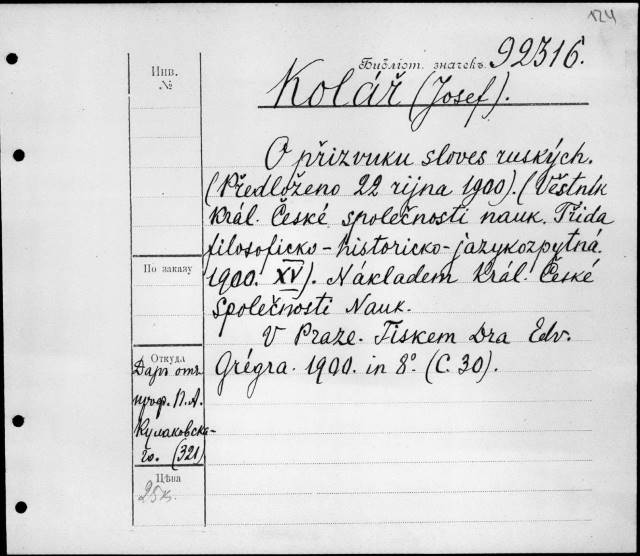 124
Библіот. значекъ 92316.
Инв.
№
Kolář (Josef).
O přizvuku sloves ruských.
(Předloženo 22 rijna 1900). (Věstník
král. České společnosti nauk. Třida
filosoficko-historicko-jazykozpytná.
1900. XV). Nákladem Král. České
Společnosti Nauk.
V Praze. Tiskem Dra Edv.
Grégra. 1900. in 8°. (С. 30).
По заказу
Откуда
Даръ отъ
проф. П. А.
Кулаковска-
го. (321)
Цѣна
25к.